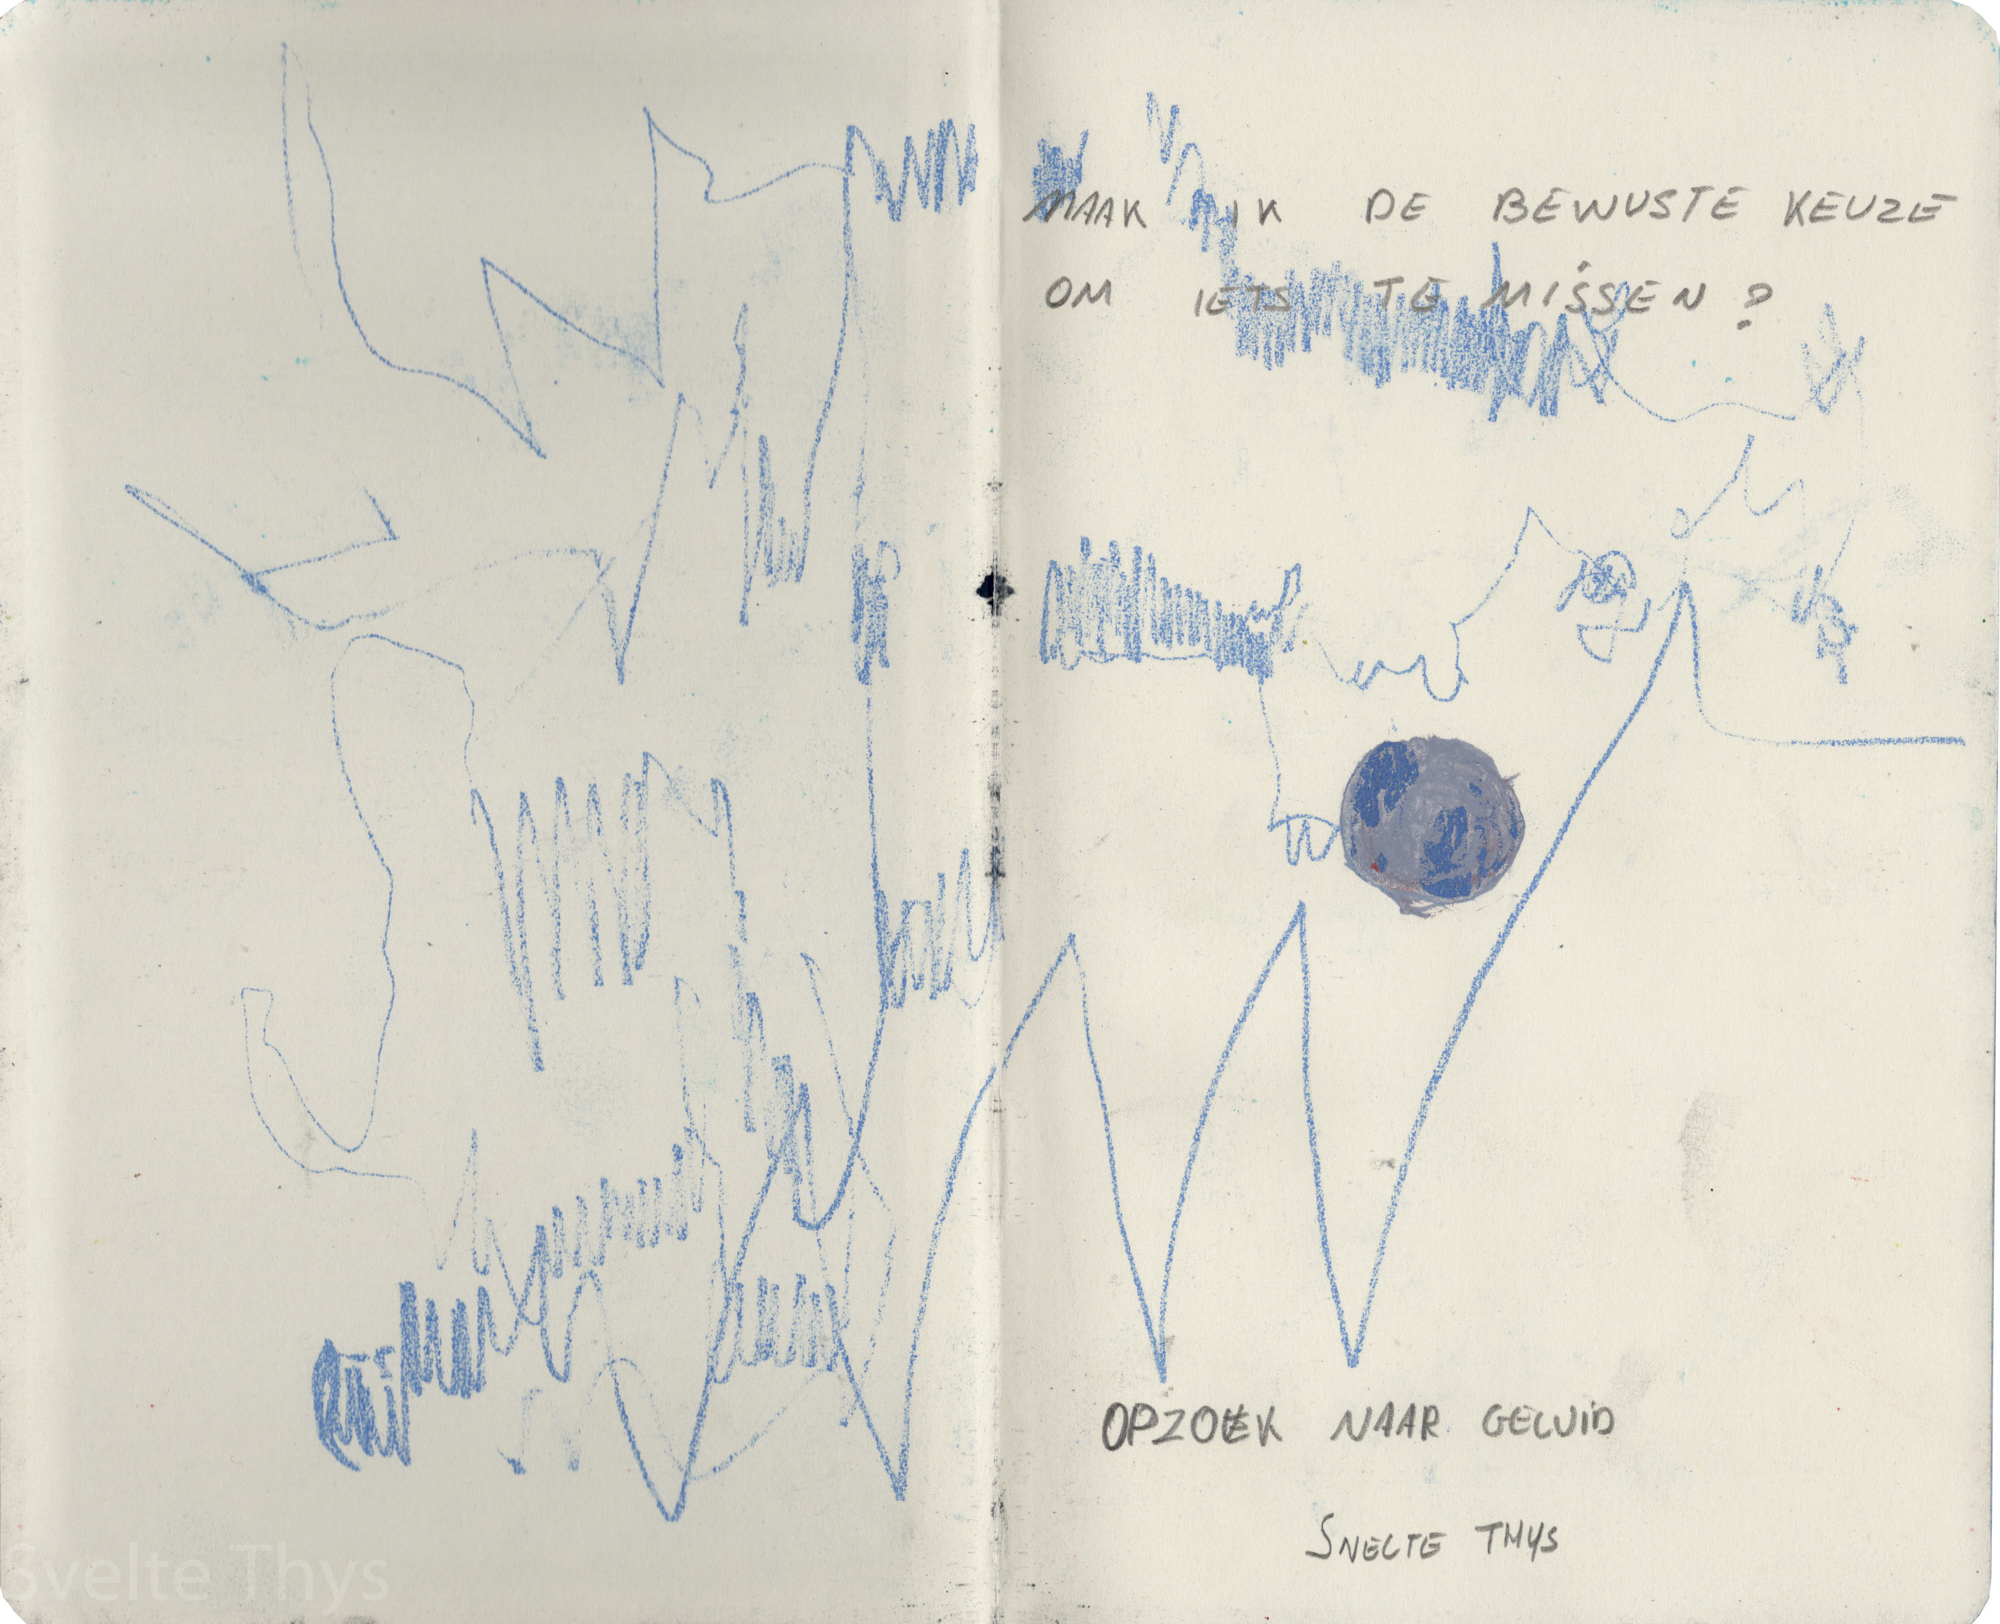 MAAK IK DE BEWUSTE KEUZE
OM IETS TE MISSEN?
OPZOEK NAAR GELUID
SVELTE THYS
Svelte Thys